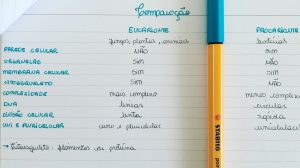 Comparação
EUCARIONTE PROCARIONTE
fungos, plantas, animais bactérias
PAREDE CELULAR NÃO SIM
ORGANELAS SIM NÃO
MEMBRANA CELULAR SIM SIM
CITOESQUELETO SIM NÃO
COMPLEXIDADE mais complexo menos complexo
DNA linear circular
DIVISÃO CELULAR lenta rápida
UNI E PLURICELULAR uni e pluricelular unicelular
→ Citoesqueleto: filamentos de proteína
STABILO